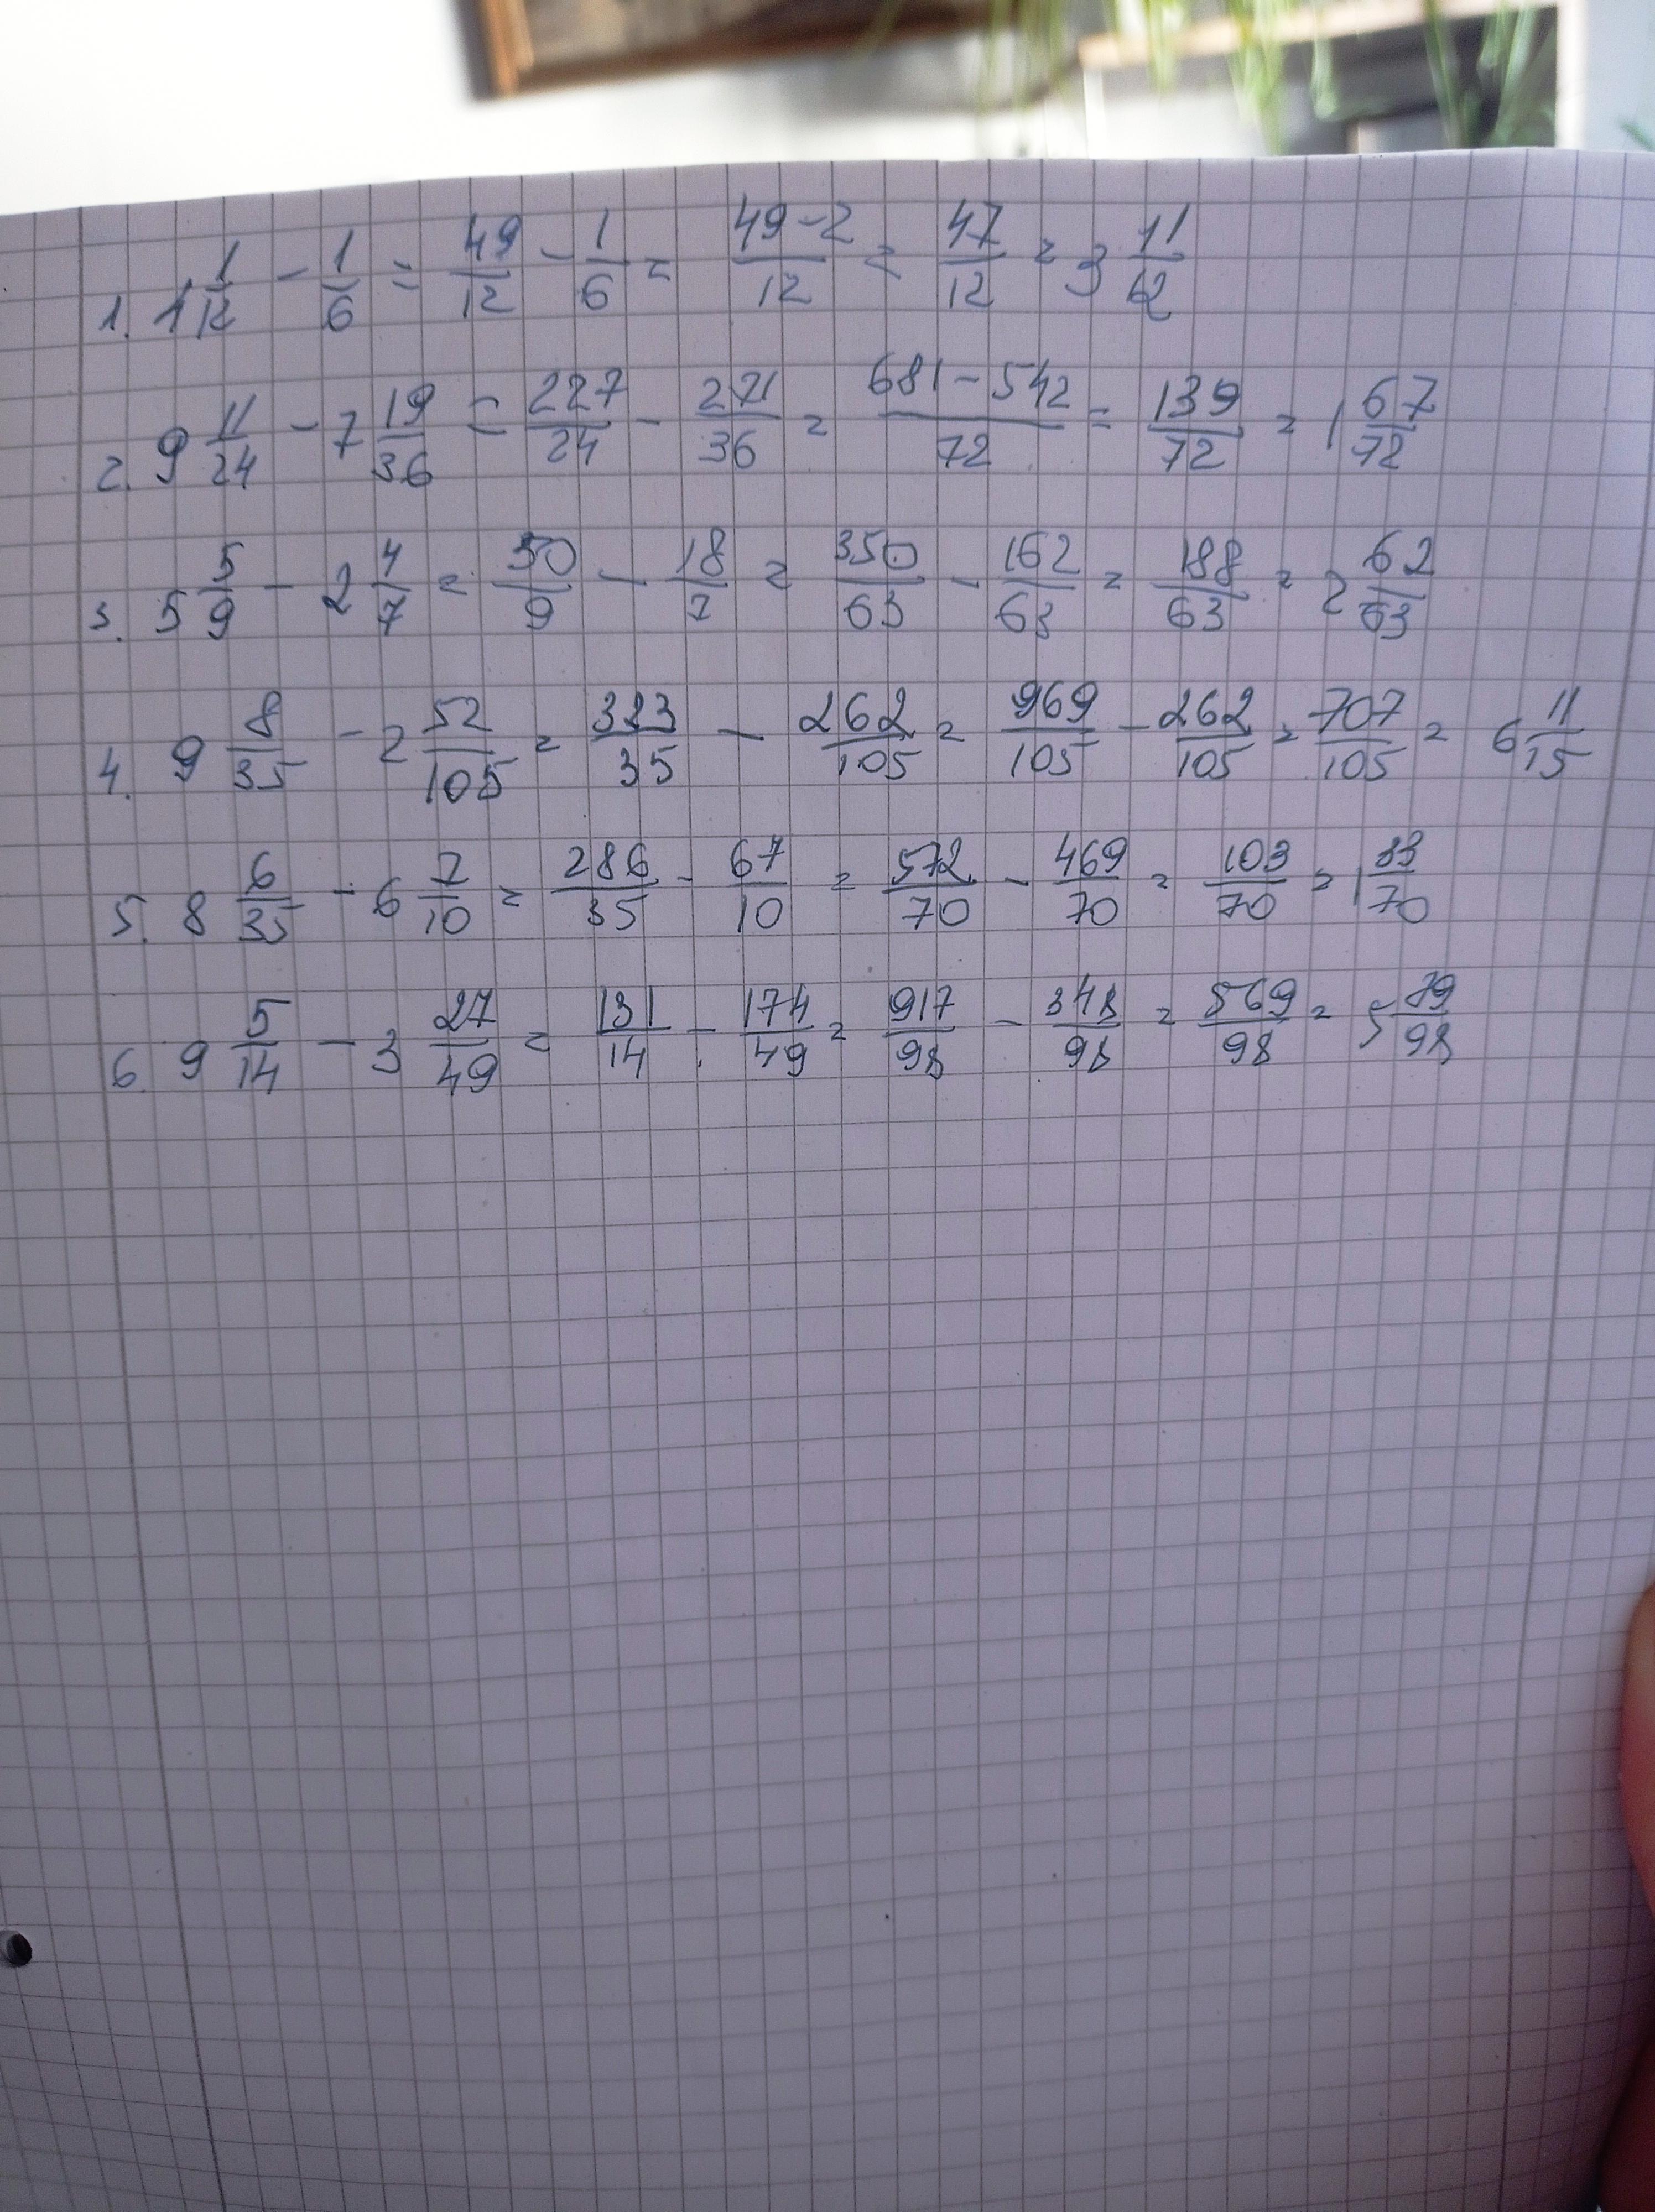 1. 4 1/12 - 1/6 = 49/12 - 1/6 = 49-2/12 = 47/12 = 3 11/12
2. 9 11/24 - 7 19/36 = 227/24 - 271/36 = 681-542/72 = 139/72 = 1 67/72
3. 5 5/9 - 2 4/7 = 50/9 - 18/7 = 350/63 - 162/63 = 188/63 = 2 62/63
4. 9 8/35 - 2 52/105 = 323/35 - 262/105 = 969/105 - 262/105 = 707/105 = 6 11/15
5. 8 6/35 - 6 7/10 = 286/35 - 67/10 = 572/70 - 469/70 = 103/70 = 1 33/70
6. 9 5/14 - 3 27/49 = 131/14 - 174/49 = 917/98 - 348/98 = 569/98 = 5 79/98